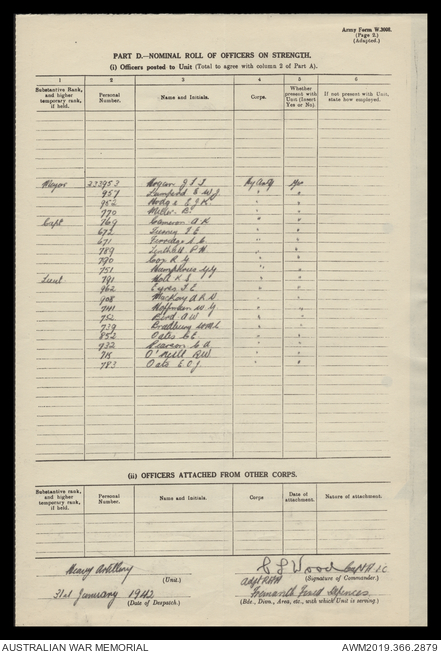 Army Form W.3008.
(Page 2.)
(Adapted.)
PART D.—NOMINAL ROLL OF OFFICERS ON STRENGTH.
(i) Officers posted to Unit (Total to agree with column 2 of Part A).
1 2 3 4 5 6
Substantive Rank, and higher temporary rank, if held. Personal Number. Name and Initials. Corps. Whether present with Unit (Insert Yes or No). If not present with Unit, state how employed.
Major 233953 Hogan J S S Hy Arty Yes
957 Lumsford E W J " "
952 Hodge E J K " "
770 Miller B. " "
Capt 769 Cameron A K " "
672 " "
671 " "
789 P H " "
790 Cox R G " "
751 Humphries " "
Lieut 791 Holt K S " "
962 Eyres F L " "
908 MacKay A R N " "
741 Hoffman W G " "
752 Bird A W " "
739 Bradbury " "
852 Oates C E " "
732 Pearson C A " "
715 O'Neill R W " "
783 Oats E O J " "
(ii) OFFICERS ATTACHED FROM OTHER CORPS.
Substantive rank, and higher temporary rank, if held. Personal Number. Name and Initials. Corps Date of attachment. Nature of attachment.
Heavy Artillery (Unit.)
S J Wood Capt
(Signature of Commander.)
31st January 1942
(Date of Despatch.)
Fremantle Fixed Defences
(Bde., Divn., Area, etc., with which Unit is serving.)
AUSTRALIAN WAR MEMORIAL
AWM2019.366.2879